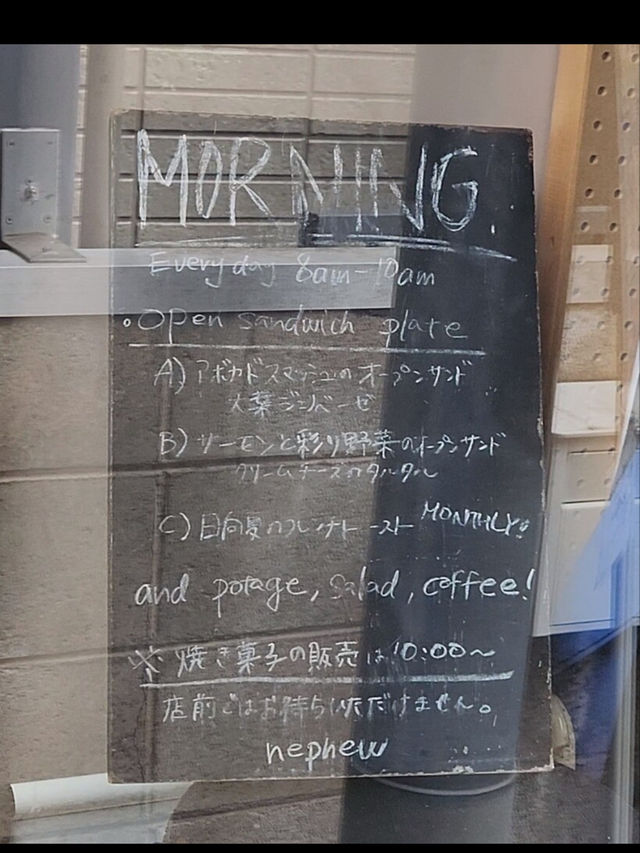 MORNING.
Everyday 8am-10am
○Open sandwich plate
A) アボカドスマッシュのオープンサンド
大葉ジェノベーゼ
B) サーモンと彩り野菜のオープンサンド
クリームチーズのタルタル
C) 日向夏のフレンチトースト MONTHLY!
and potage, salad, coffee!
※焼き菓子の販売は10:00〜
店前ではお待ちいただけません。
nephew